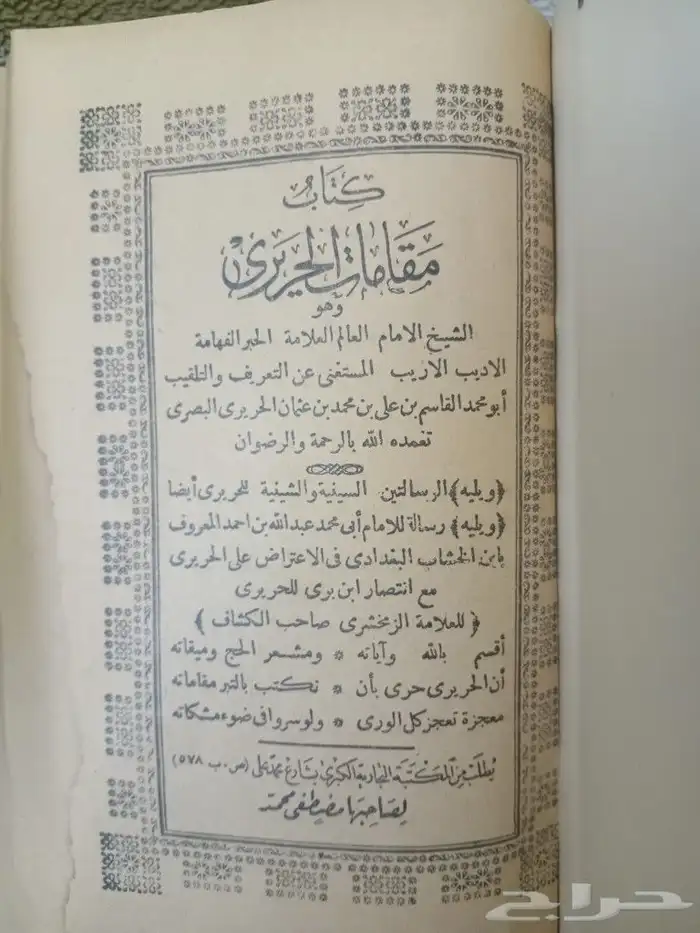 كِتَابُ
مَقَامَاتِ الحَرِيرِي
وهو
الشيخ الامام العالم العلامة الحبر الفهامة
الاديب الاريب المستغنى عن التعريف والتلقيب
أبو محمد القاسم بن على بن محمد بن عثمان الحريرى البصرى
تغمده الله بالرحمة والرضوان
﴿ويليه﴾ الرسالتين السينية والشينية للحريرى أيضا
﴿ويليه﴾ رسالة للامام أبى محمد عبد الله بن احمد المعروف
بابن الخشاب البغدادى فى الاعتراض على الحريرى
مع انتصار ابن برى للحريرى
﴿ للعلامة الزمخشرى صاحب الكشاف ﴾
أقسم بالله وآياته * ومشعر الحج وميقاته
أن الحريرى حرى بأن * نكتب بالتبر مقاماته
معجزة تعجز كل الورى * ولو سروا فى ضوء مشكاته
يُطلَبُ مِنَ المَكْتَبَةِ التِّجَارِيَّةِ الكُبْرَىٰ بِشَارِعِ مُحَمَّد عَلِى (ص.ب ٥٧٨)
لِصَاحِبِهَا مُصْطَفَى مُحَمَّد
حراج